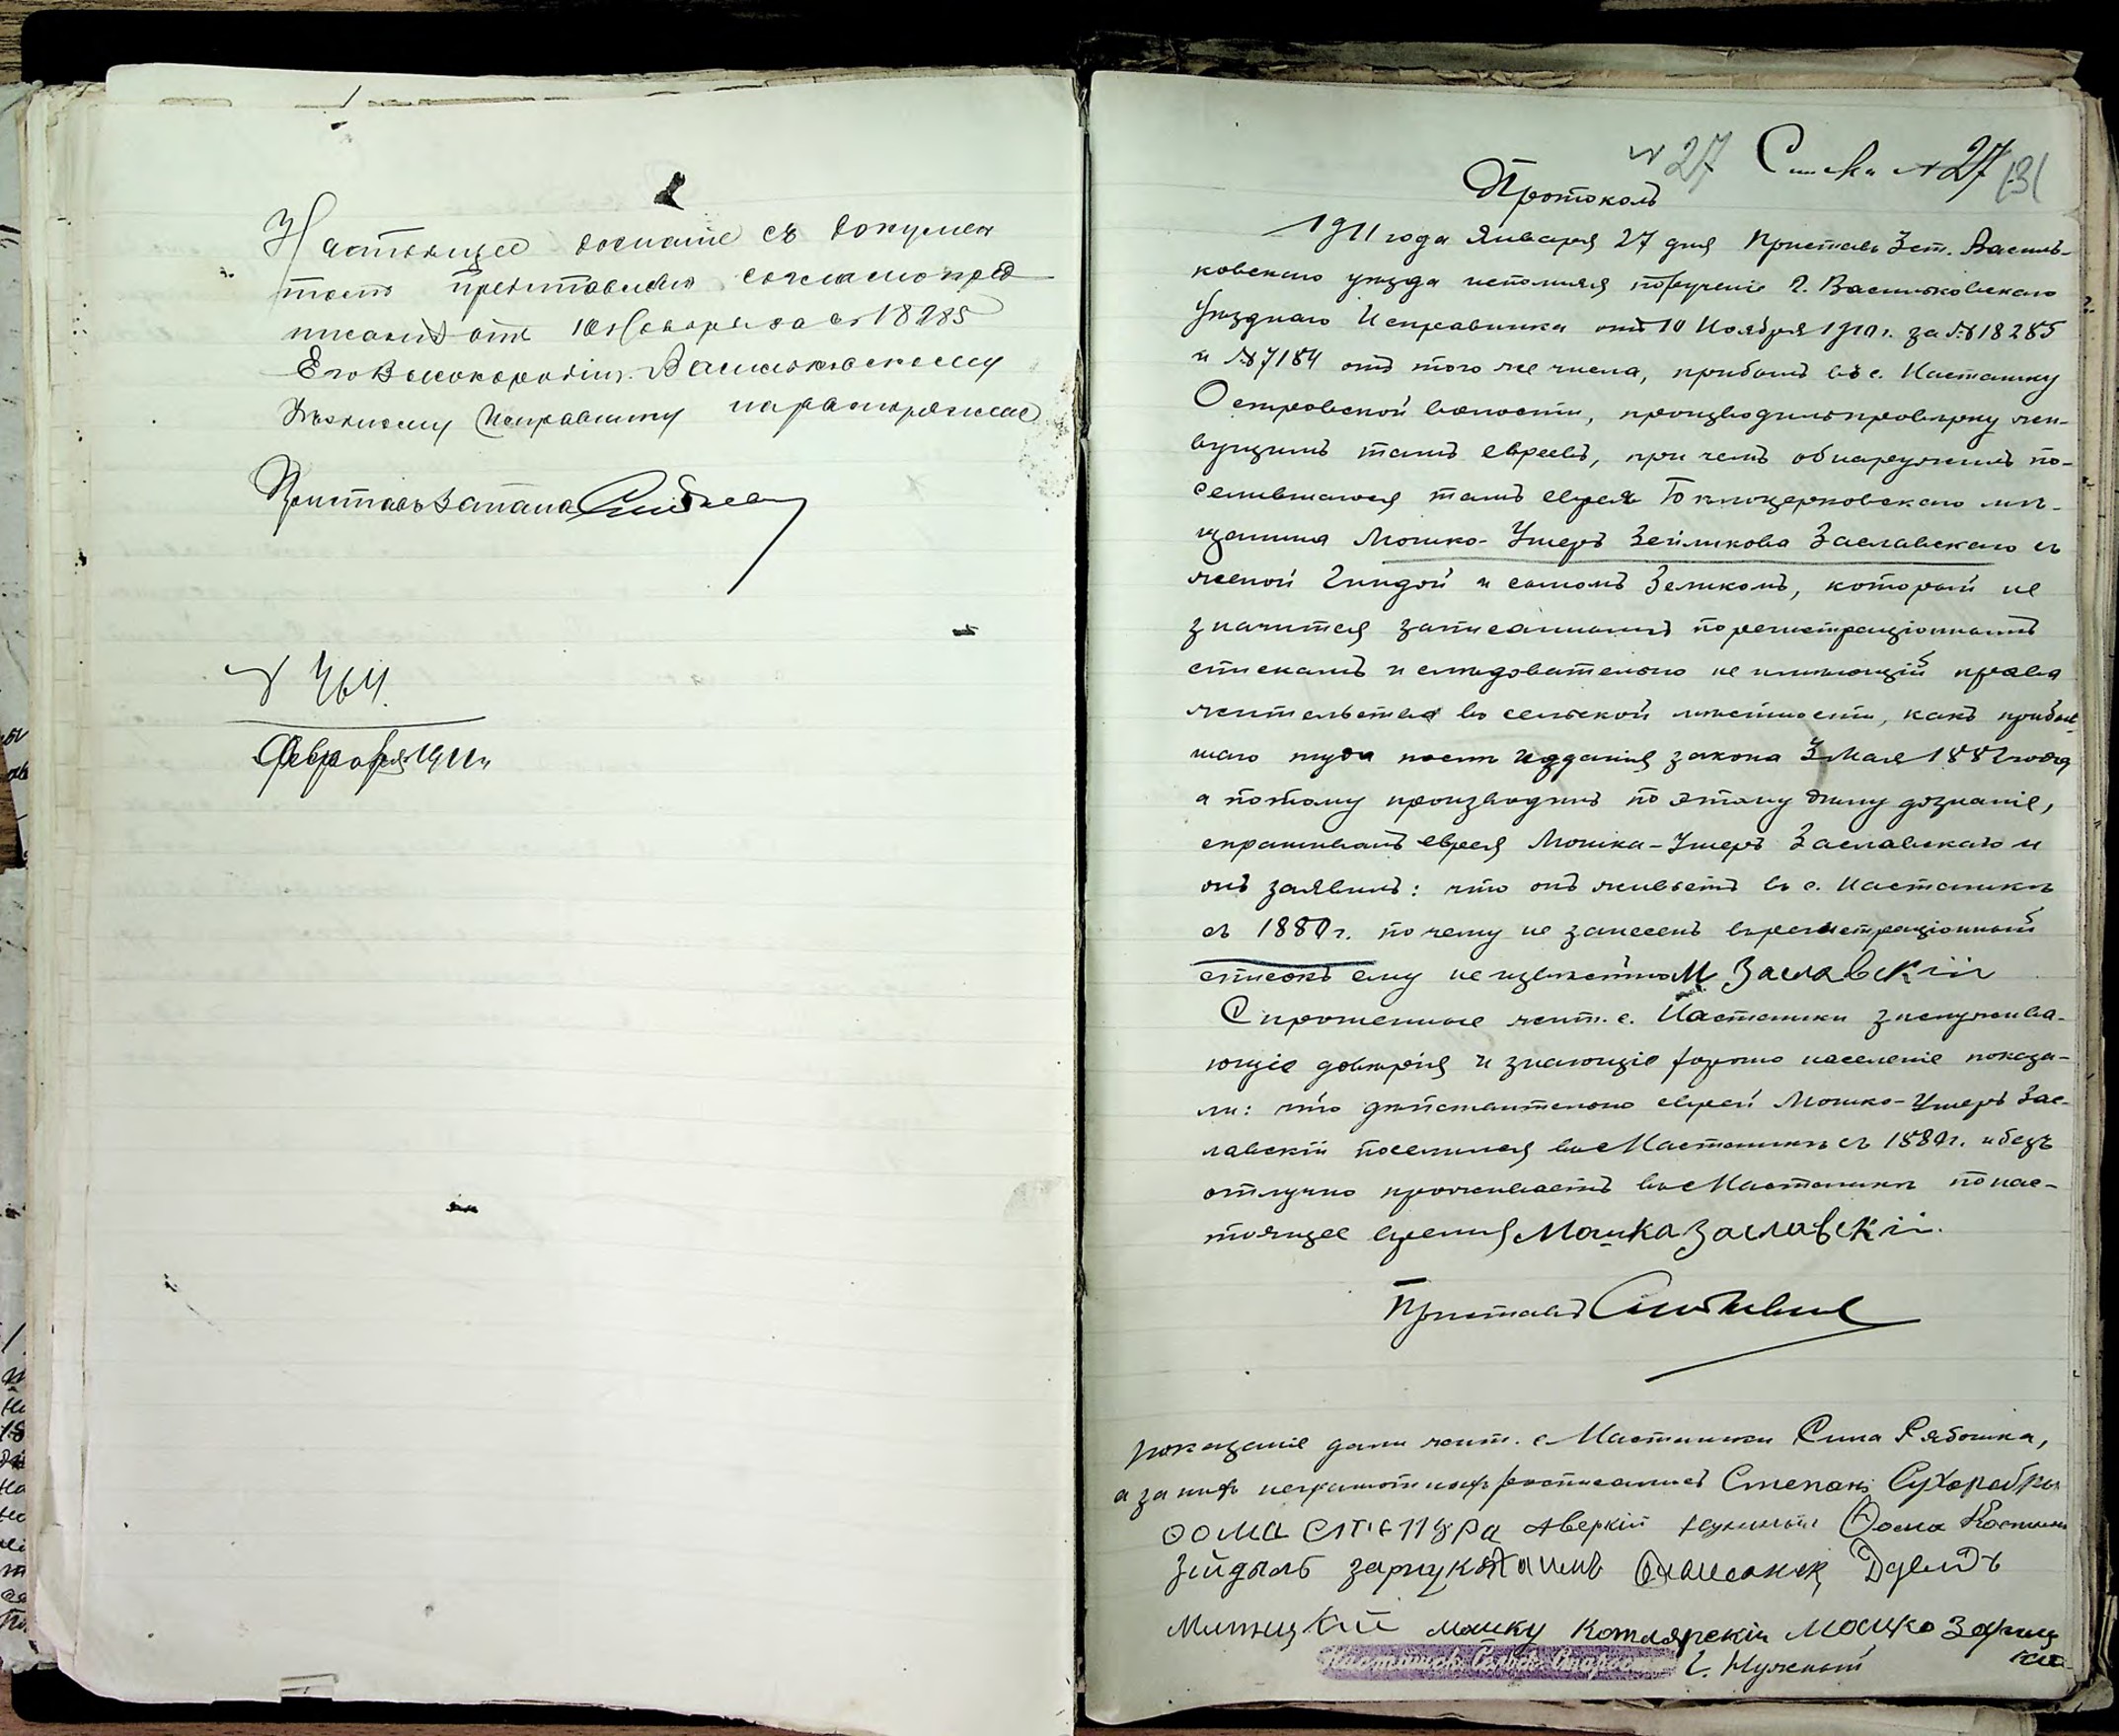 Настоящее дознаніе съ докумен
томъ представляю согласно пред
писанія отъ 10 Ноября за № 18285
Его Высокородію Васильковскому
Уѣздному Исправнику на распоряженіе
Приставъ 3 стана
№ 764.
Февраля 1911 г.
№ 27 Списка № 27 131
Протоколъ
1911 года Января 27 дня Приставъ 3 ст. Василь-
ковскаго уѣзда исполняя порученіе Г. Васильковскаго
Уѣзднаго Исправника отъ 10 Ноября 1910 г. за № 18285
и № 7184 отъ того же числа, прибылъ въ с. Насташку
Островской волости, производилъ провѣрку жи-
вущимъ тамъ евреевъ, при чемъ обнаружилъ по-
селившагося тамъ еврея Бѣлоцерковскаго мѣ-
щанина Мошко-Ушеръ Зейликова Заславскаго съ
женой Гиндой и сыномъ Зеликомъ, который не
значится записаннымъ по регистраціоннымъ
спискамъ и слѣдовательно не имѣющій права
жительства въ сельской мѣстности, какъ прибыв-
шаго туда послѣ изданія закона 3 Мая 1882 года
а потому производилъ по этому дѣлу дознаніе,
спрашивалъ еврея Мошка-Ушеръ Заславскаго и
онъ заявилъ: что онъ живетъ въ с. Насташкѣ
съ 1880 г. почему не занесенъ въ регистраціонный
списокъ ему не извѣстно М Заславскій
Спрошенные жит. с. Насташки заслужива-
ющіе довѣрія и знающіе хорошо населеніе показа-
ли: что дѣйствительно еврей Мошко-Ушеръ Зас-
лавскій поселился въ с Насташкѣ съ 1880 г. и безъ
отлучно проживаетъ въ с Насташкѣ по нас-
тоящее время Мошка Заславскій.
Приставъ
Показаніе дали жит. с Насташки Сила Рябошка,
а за нихъ неграмотныхъ росписались Степанъ Сухоребры
Ѳома Аверкій Нужный Ѳома
Зйдыль Давидъ
Мошку Котлярскій Мошко
Г. Нужный